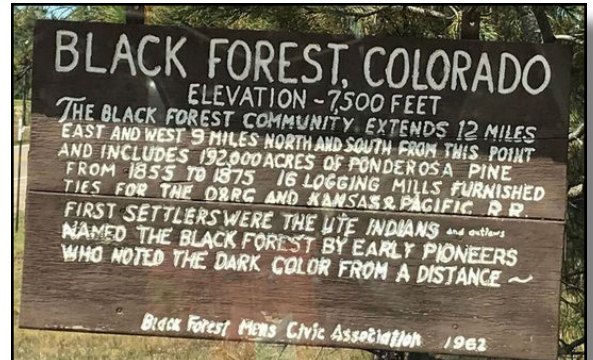 BLACK FOREST, COLORADO
ELEVATION - 7,500 FEET
THE BLACK FOREST COMMUNITY EXTENDS 12 MILES
EAST AND WEST 9 MILES NORTH AND SOUTH FROM THIS POINT
AND INCLUDES 192,000 ACRES OF PONDEROSA PINE
FROM 1855 TO 1875 16 LOGGING MILLS FURNISHED
TIES FOR THE D&RG AND KANSAS & PACIFIC R.R.
FIRST SETTLERS WERE THE UTE INDIANS and outlaws
NAMED THE BLACK FOREST BY EARLY PIONEERS
WHO NOTED THE DARK COLOR FROM A DISTANCE ~
Black Forest Mens Civic Association 1962